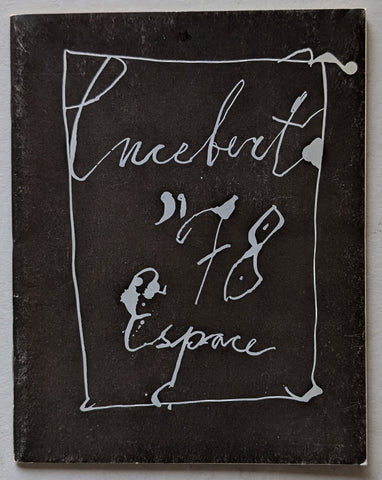 Lucebert
"78
Espace